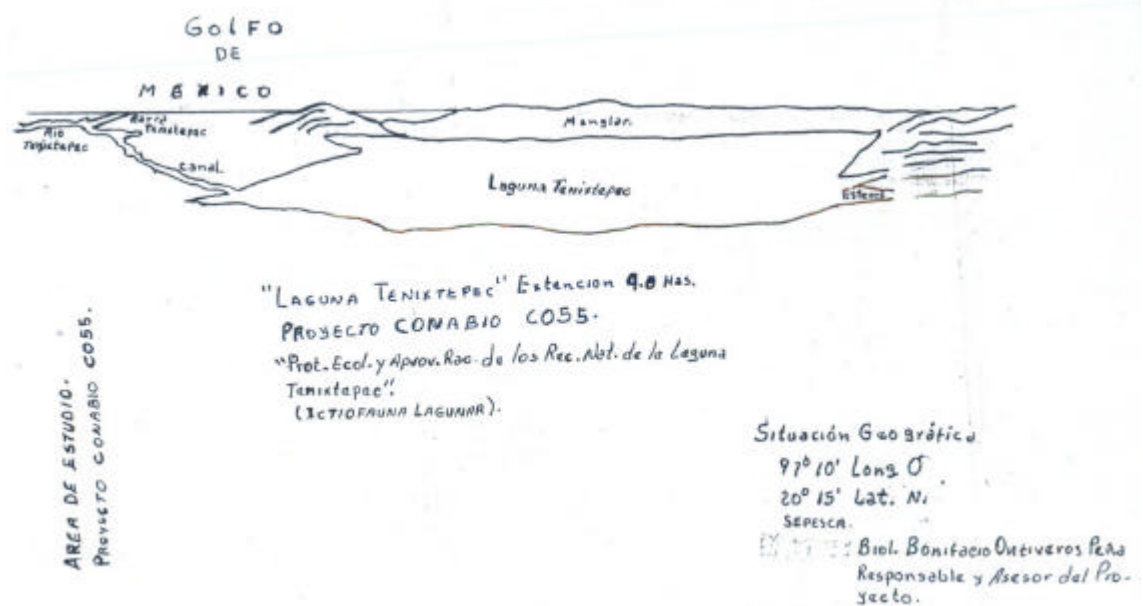 GOLFO
DE
MEXICO
Barra
Tenixtepec
Rio
Tenixtepec
Canal
Manglar.
Laguna Tenixtepec
Esteros
"LAGUNA TENIXTEPEC" Extencion Has.
PROYECTO CONABIO CO55.
"Prot. Ecol. y Aprov. Rac. de los Rec. Nat. de la Laguna
Tenixtepec".
(ICTIOFAUNA LAGUNAR).
AREA DE ESTUDIO.
PROYECTO CONABIO CO55.
Situación Geográfica
97° 10' Long O
20° 15' Lat. N.
SEPESCA.
Biol. Bonifacio Ontiveros Peña
Responsable y Asesor del Pro-
yecto.